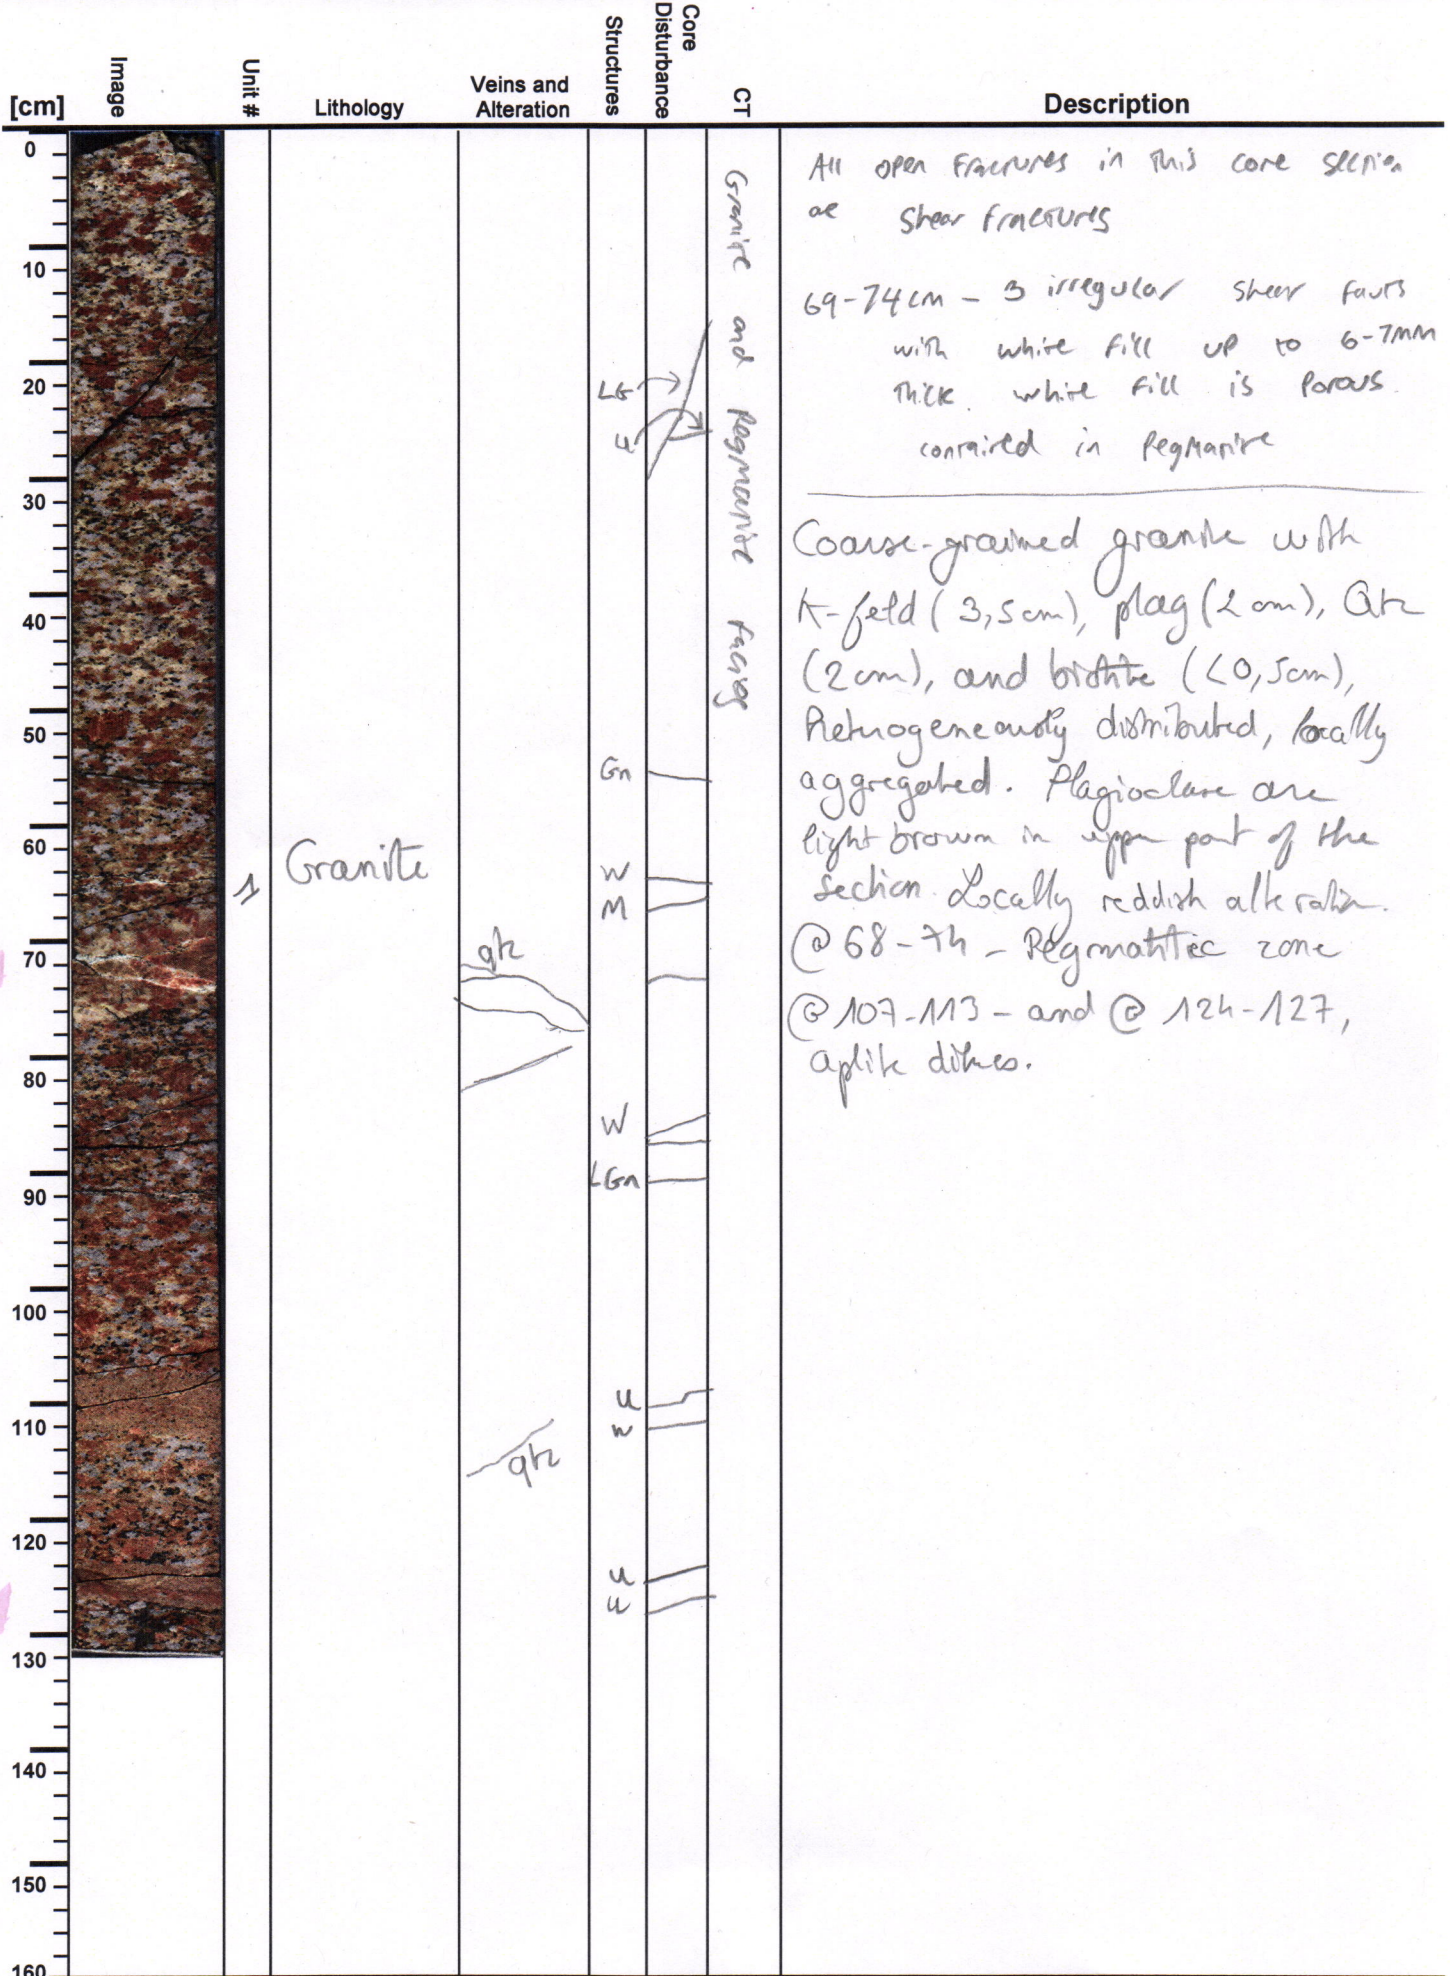 [cm]
Image
Unit #
Lithology
Veins and
Alteration
Structures
Core
Disturbance
CT
Description
0
10
20
30
40
50
60
70
80
90
100
110
120
130
140
150
160
1
Granite
qtz
qtz
LG
u
Gn
W
M
W
LGn
u
w
u
u
Granite and Pegmatite facies
All open fractures in this core section
are shear fractures
69-74cm - 3 irregular shear faults
with white fill up to 6-7mm
thick. white fill is Porous.
contained in Pegmatite
Coarse-grained granite with
K-feld (3,5cm), plag (2cm), Qtz
(2cm), and biotite (<0,5cm),
heterogeneously distributed, locally
aggregated. Plagioclase are
light brown in upper part of the
section. Locally reddish alteration.
@ 68-74 - Pegmatitic zone
@ 107-113 - and @ 124-127,
aplite dikes.